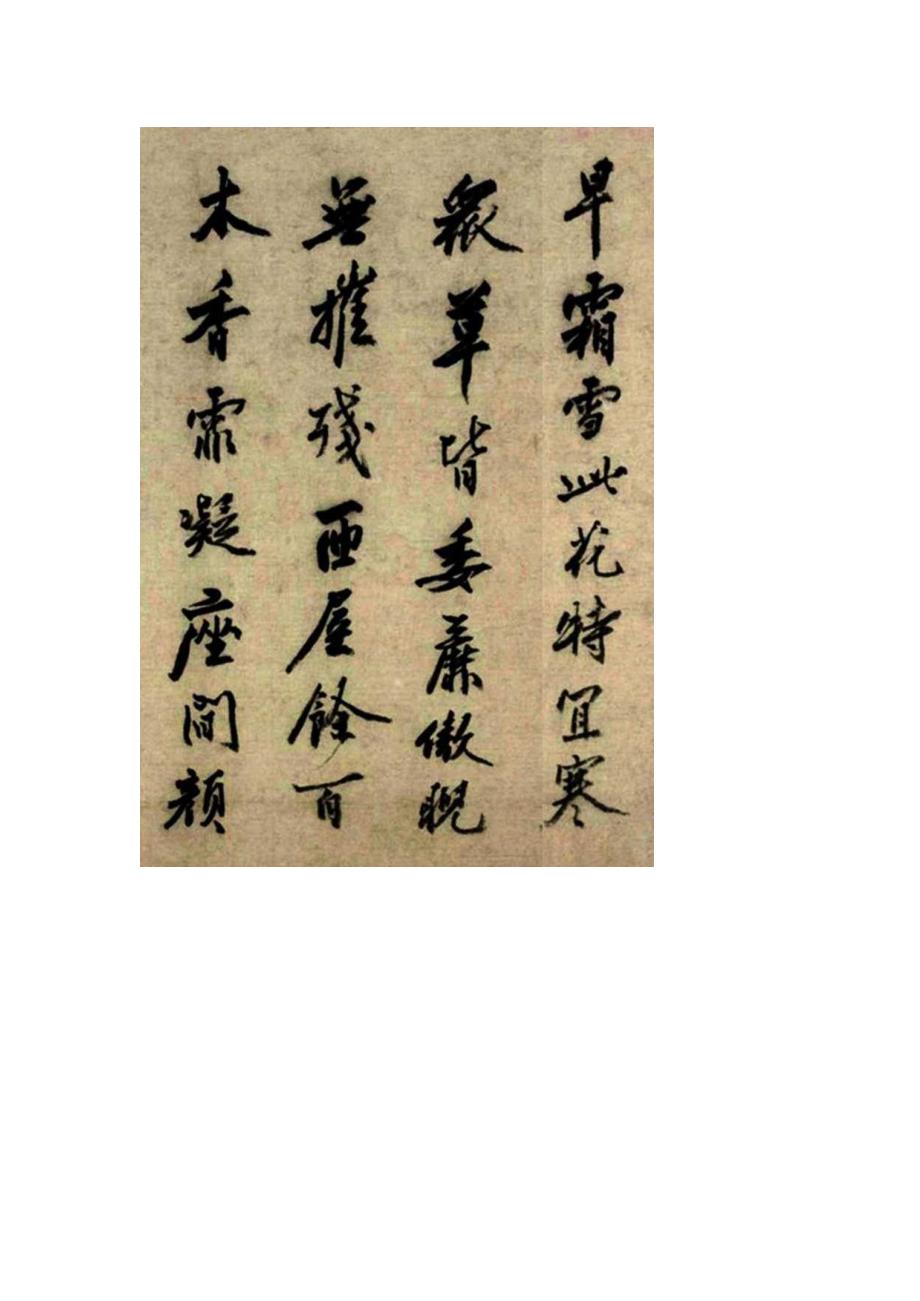 早霜雪此花特宜寒
衆草皆委䕲傲睨
無摧殘西屋餘百
木香霏凝座間顏